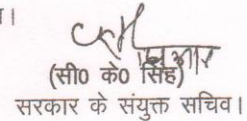 ।
(सी0 के0 सिंह)
सरकार के संयुक्त सचिव।